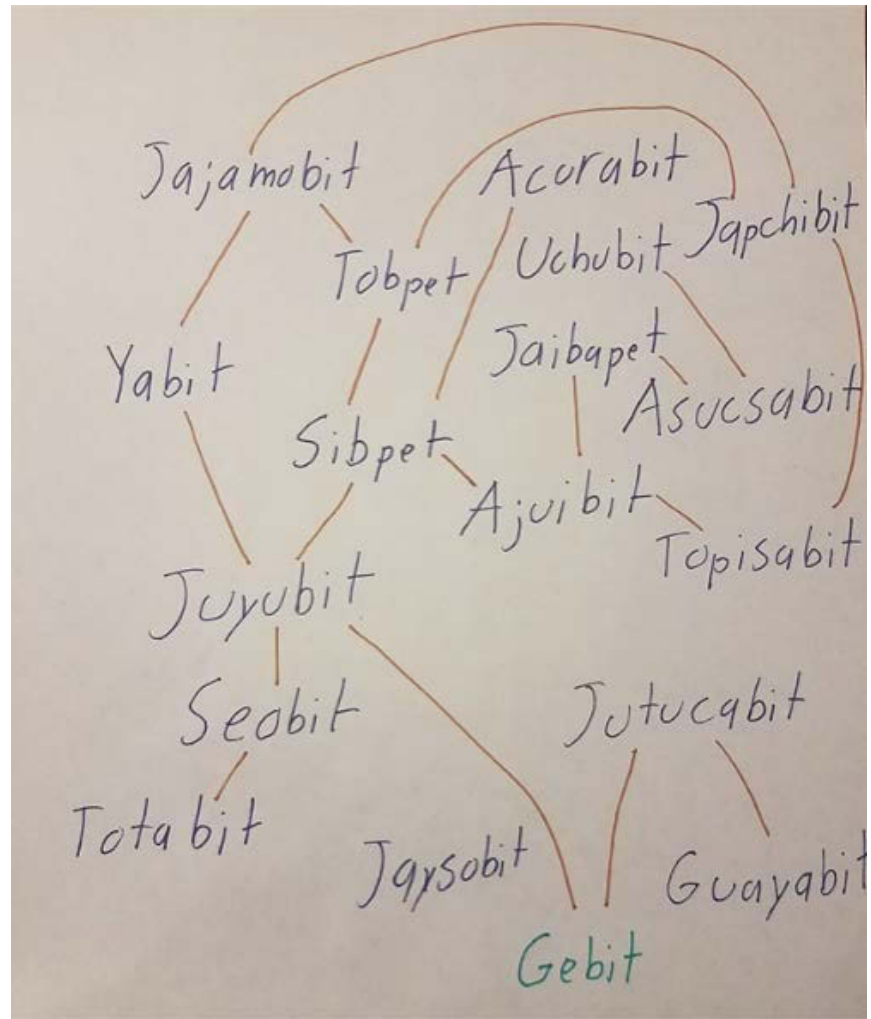 Jajamobit
Acurabit
Japchibit
Tobpet
Uchubit
Yabit
Jaibapet
Asucsabit
Sibpet
Ajuibit
Topisabit
Juyubit
Seobit
Jutucabit
Totabit
Jaysobit
Guayabit
Gebit